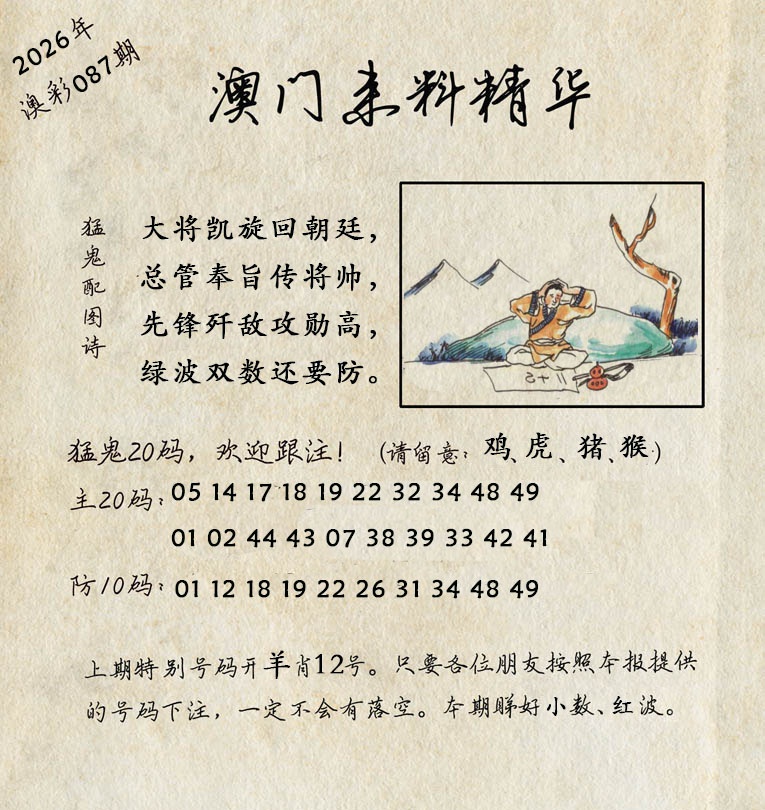 2026年
澳彩087期
澳门来料精华
猛鬼配图诗
大将凯旋回朝廷，
总管奉旨传将帅，
先锋歼敌攻勋高，
绿波双数还要防。
猛鬼20码，欢迎跟注！（请留意：鸡、虎、猪、猴）
主20码：05 14 17 18 19 22 32 34 48 49
01 02 44 43 07 38 39 33 42 41
防10码：01 12 18 19 22 26 31 34 48 49
上期特别号码开羊肖12号。只要各位朋友按照本报提供
的号码下注，一定不会有落空。本期睇好小数、红波。